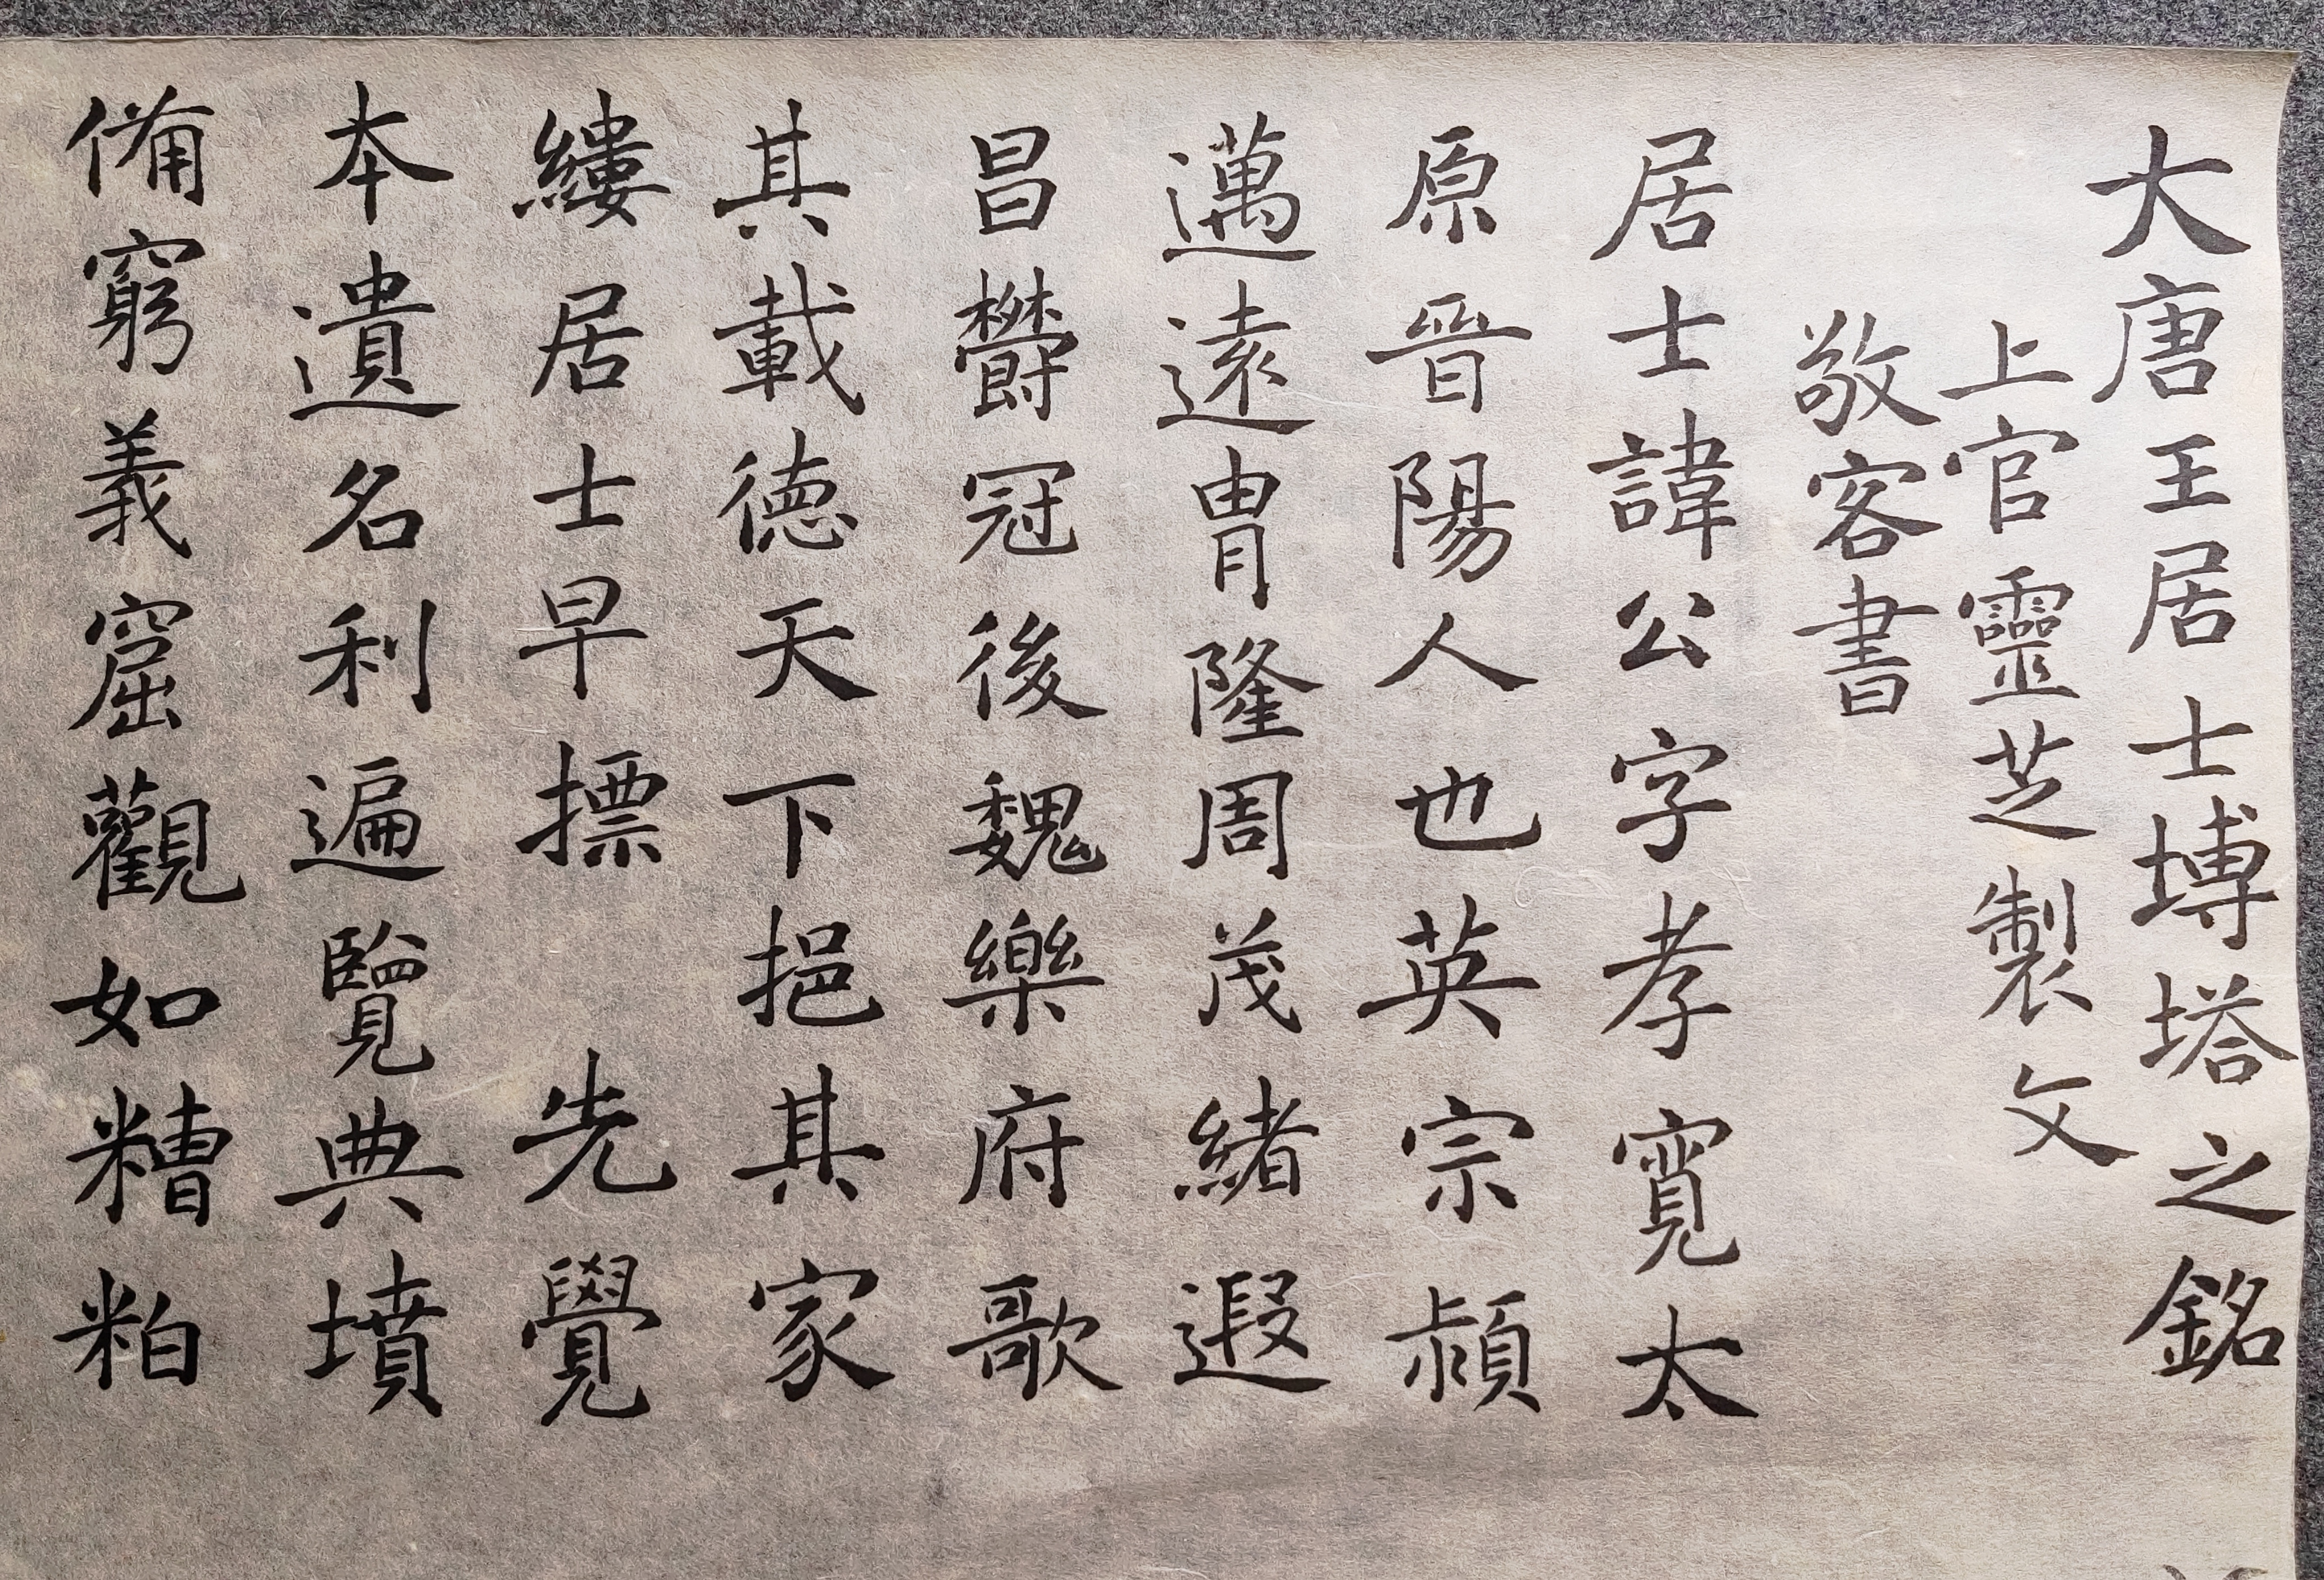 大唐王居士塼塔之銘
上官靈芝製文
敬客書
居士諱公字孝寬太
原晉陽人也英宗潁
邁遠冑隆周茂緒遐
昌欝冠後魏樂府歌
其載德天下挹其家
縷居士早摽先覺
本遺名利遍覽典墳
備窮義窟觀如糟粕